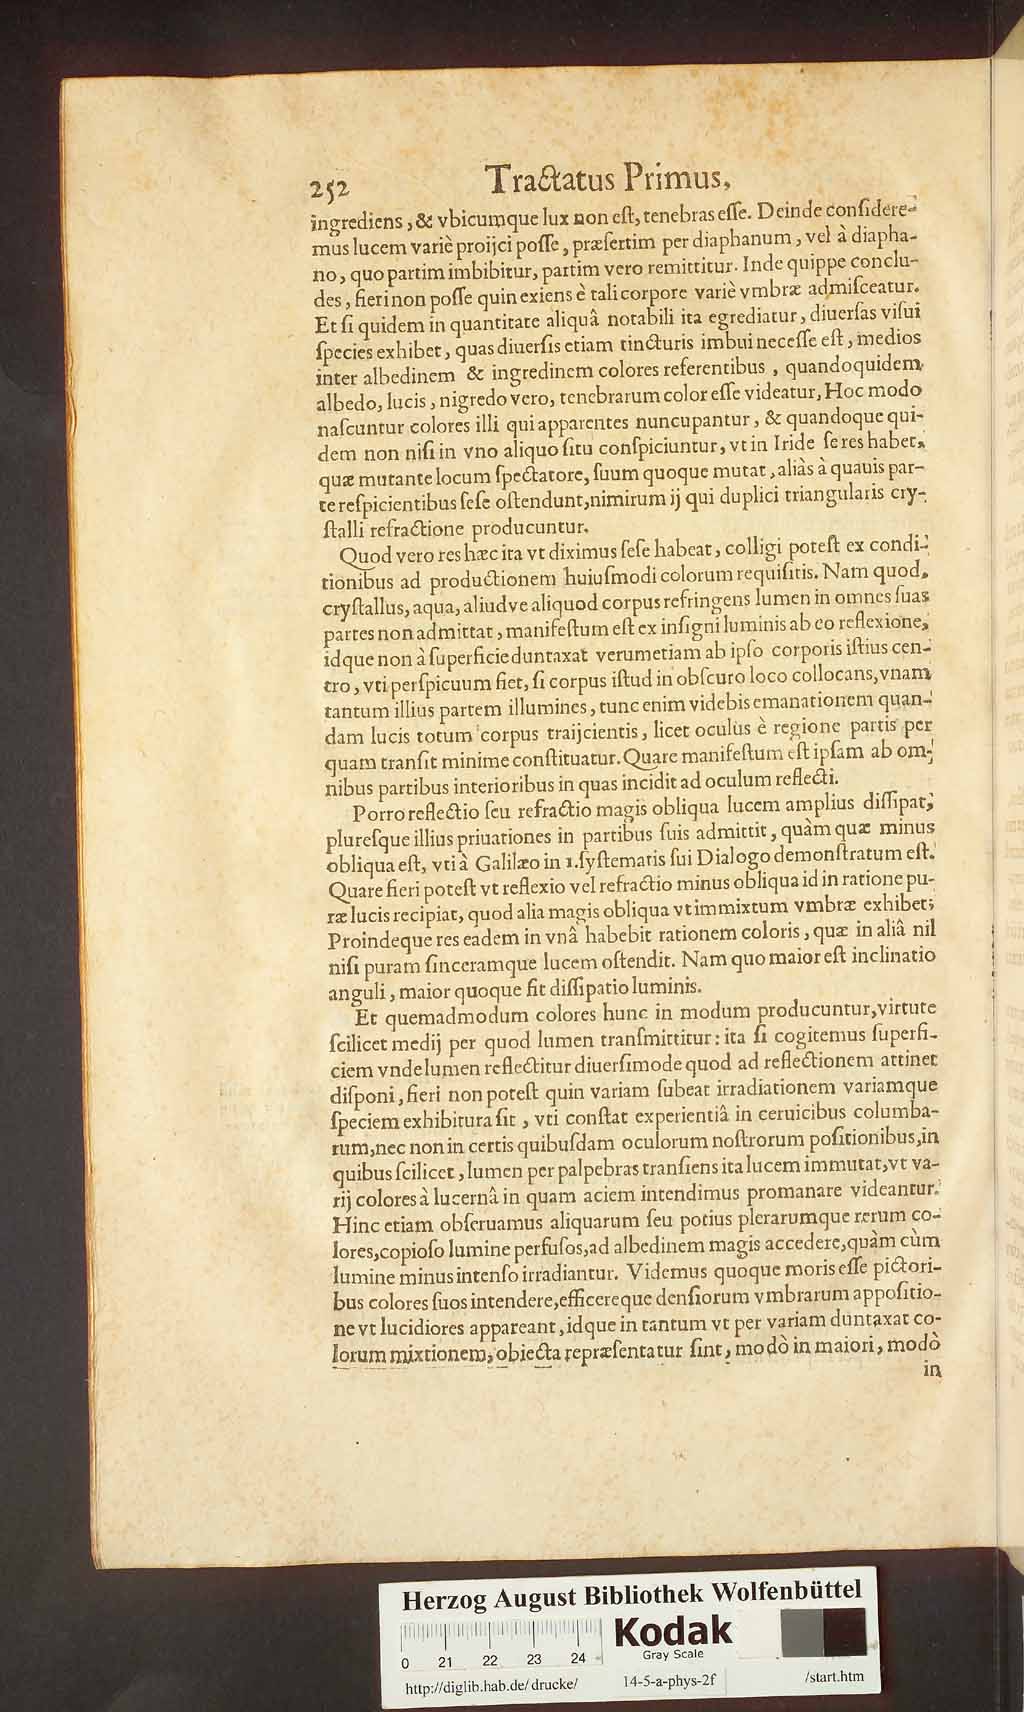 252 Tractatus Primus,
ingrediens, & vbicumque lux non eſt, tenebras eſſe. Deinde conſidere-
mus lucem variè proijci poſſe, præſertim per diaphanum, vel à diapha-
no, quo partim imbibitur, partim vero remittitur. Inde quippe conclu-
des, fieri non poſſe quin exiens è tali corpore variè vmbræ admiſceatur.
Et ſi quidem in quantitate aliquâ notabili ita egrediatur, diuerſas viſui
ſpecies exhibet, quas diuerſis etiam tincturis imbui neceſſe eſt, medios
inter albedinem & ingredinem colores referentibus, quandoquidem
albedo, lucis, nigredo vero, tenebrarum color eſſe videatur, Hoc modo
naſcuntur colores illi qui apparentes nuncupantur, & quandoque qui-
dem non niſi in vno aliquo ſitu conſpiciuntur, vt in Iride ſe res habet,
quæ mutante locum ſpectatore, ſuum quoque mutat, aliàs à quauis par-
te reſpicientibus ſeſe oſtendunt, nimirum ij qui duplici triangularis cry-
ſtalli refractione producuntur.
Quod vero res hæc ita vt diximus ſeſe habeat, colligi poteſt ex condi-
tionibus ad productionem huiuſmodi colorum requiſitis. Nam quod
cryſtallus, aqua, aliudve aliquod corpus refringens lumen in omnes ſuas
partes non admittat, manifeſtum eſt ex inſigni luminis ab eo reflexione,
idque non à ſuperficie duntaxat verumetiam ab ipſo corporis iſtius cen-
tro, vti perſpicuum fiet, ſi corpus iſtud in obſcuro loco collocans, vnam
tantum illius partem illumines, tunc enim videbis emanationem quan-
dam lucis totum corpus traijcientis, licet oculus è regione partis per
quam tranſit minime conſtituatur. Quare manifeſtum eſt ipſam ab om-
nibus partibus interioribus in quas incidit ad oculum reflecti.
Porro reflectio ſeu refractio magis obliqua lucem amplius diſſipat,
plureſque illius priuationes in partibus ſuis admittit, quàm quæ minus
obliqua eſt, vti à Galilæo in 1. ſyſtematis ſui Dialogo demonſtratum eſt.
Quare fieri poteſt vt reflexio vel refractio minus obliqua id in ratione pu-
ræ lucis recipiat, quod alia magis obliqua vt immixtum vmbræ exhibet;
Proindeque res eadem in vnâ habebit rationem coloris, quæ in aliâ nil
niſi puram ſinceramque lucem oſtendit. Nam quo maior eſt inclinatio
anguli, maior quoque fit diſſipatio luminis.
Et quemadmodum colores hunc in modum producuntur, virtute
ſcilicet medij per quod lumen tranſmittitur: ita ſi cogitemus ſuperfi-
ciem vnde lumen reflectitur diuerſimode quod ad reflectionem attinet
diſponi, fieri non poteſt quin variam ſubeat irradiationem variamque
ſpeciem exhibitura ſit, vti conſtat experientiâ in ceruicibus columba-
rum, nec non in certis quibuſdam oculorum noſtrorum poſitionibus, in
quibus ſcilicet, lumen per palpebras tranſiens ita lucem immutat, vt va-
rij colores à lucernâ in quam aciem intendimus promanare videantur.
Hinc etiam obſeruamus aliquarum ſeu potius plerarumque rerum co-
lores, copioſo lumine perfuſos, ad albedinem magis accedere, quàm cùm
lumine minus intenſo irradiantur. Videmus quoque moris eſſe pictori-
bus colores ſuos intendere, efficereque denſiorum vmbrarum appoſitio-
ne vt lucidiores appareant, idque in tantum vt per variam duntaxat co-
lorum mixtionem, obiecta repræſentatur ſint, modò in maiori, modò
in
Herzog August Bibliothek Wolfenbüttel
Kodak
Gray Scale
0 21 22 23 24
http://diglib.hab.de/drucke/ 14-5-a-phys-2f /start.htm